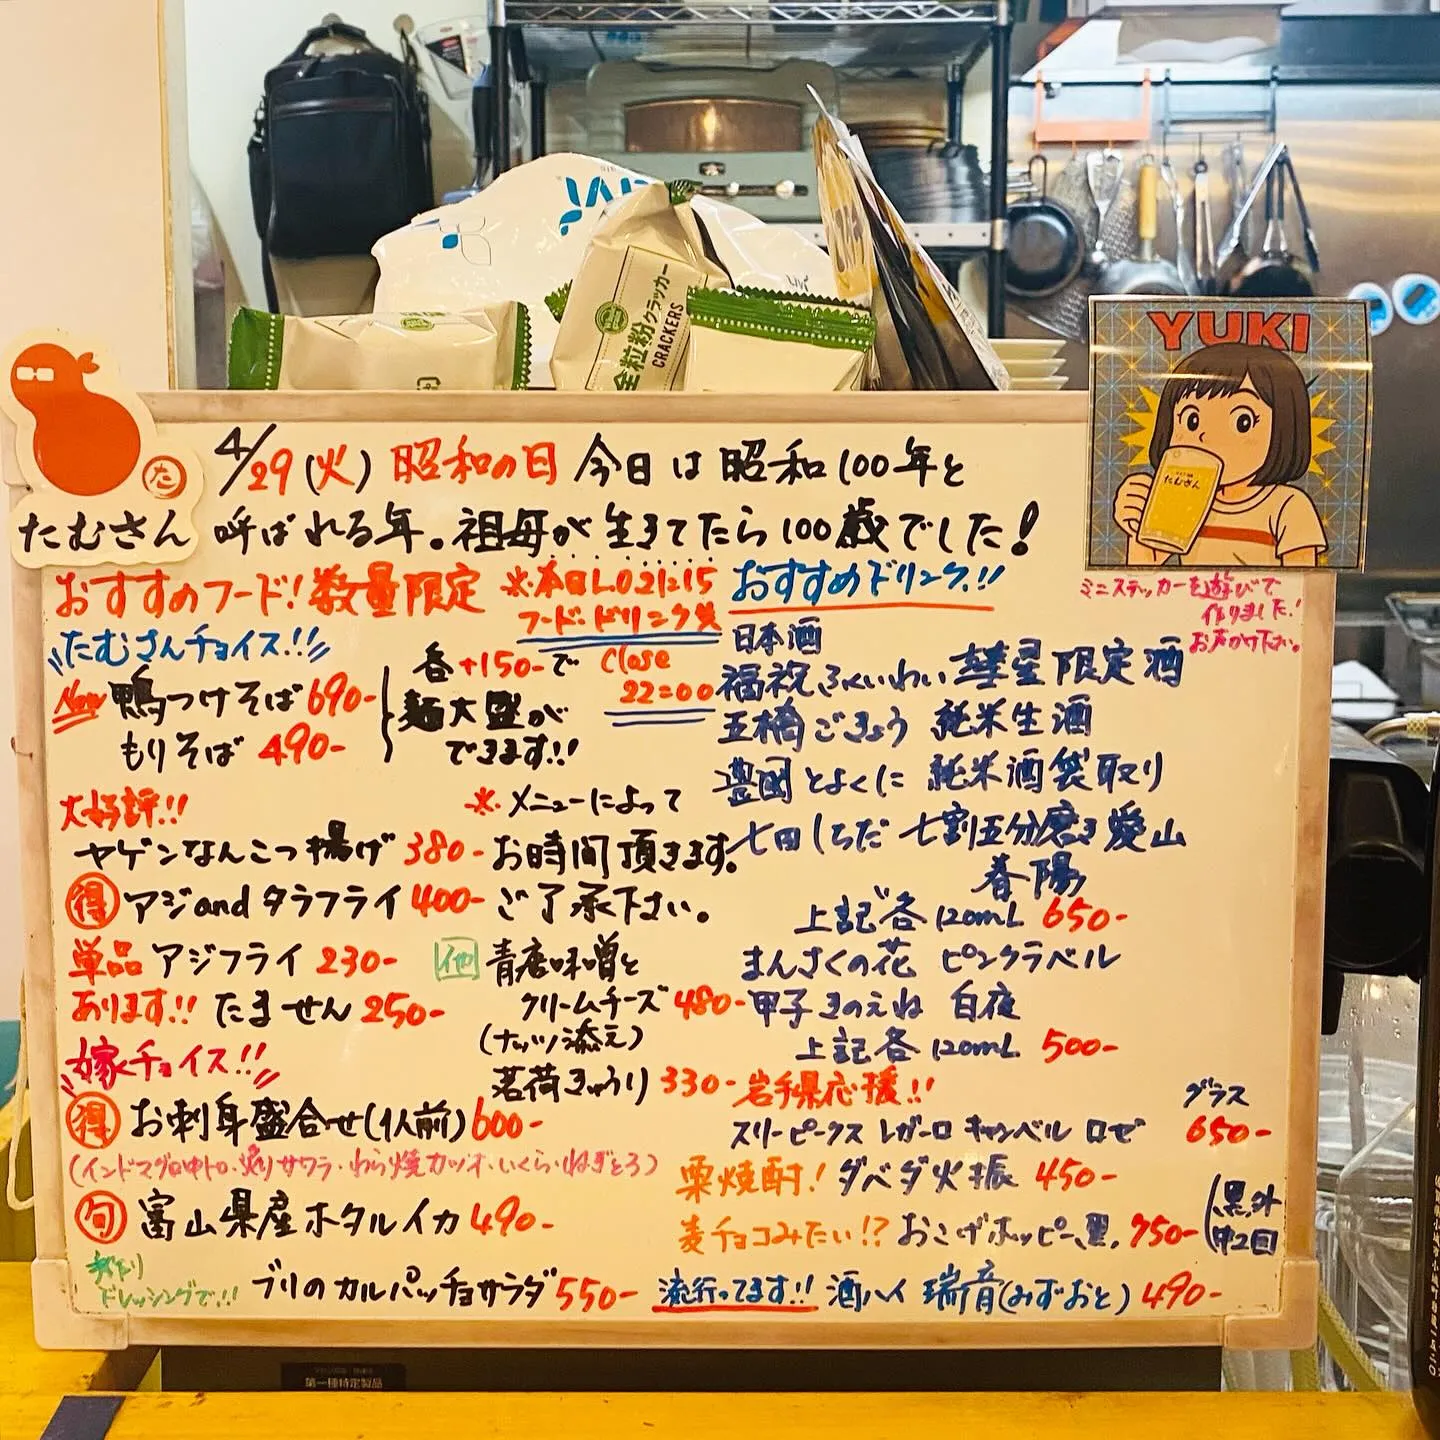 全粒粉クラッカー
CRACKERS
YUKI
たむさん
た
たむさん
4/29(火) 昭和の日 今日は昭和100年と
呼ばれる年。祖母が生きてたら100歳でした!
おすすめフード!数量限定
※本日L.O21:15
フード・ドリンク共
Close
22:00
たむさんチョイス!!
New 鴨つけそば 690-
もりそば 490-
各+150-で
麺大盛が
できます!!
大好評!!
ヤゲンなんこつ揚げ 380-
得 アジandタラフライ 400-
単品 アジフライ 230-
あります!! たません 250-
※メニューによって
お時間頂きます。
ご了承下さい。
他 青唐味噌と
クリームチーズ 480-
(ナッツ添え)
茗荷きゅうり 330-
嫁チョイス!!
得 お刺身盛合せ(1人前) 600-
(インドマグロ中トロ・炙りサワラ・わら焼カツオ・いくら・ねぎとろ)
旬 富山県産ホタルイカ 490-
手作り
ドレッシングで!!
ブリのカルパッチョサラダ 550-
おすすめドリンク!!
日本酒
福祝 ふくいわい 彗星 限定酒
五橋 ごきょう 純米生酒
豊國 とよくに 純米酒袋取り
七田 しちだ 七割五分磨き 愛山
春陽
上記各120mL 650-
まんさくの花 ピンクラベル
甲子 きのえね 白夜
上記各120mL 500-
岩手県応援!!
グラス
スリーピークス レガーロ キャンベル ロゼ 650-
栗焼酎! ダバダ火振 450-
麦チョコみたい!? おこげホッピー黒 750-
(黒、外
中2回
流行ってます!! 酒ハイ 瑞音(みずおと) 490-
ミニステッカーを遊びで
作りました!
お声かけ下さい。
第一種特定製品